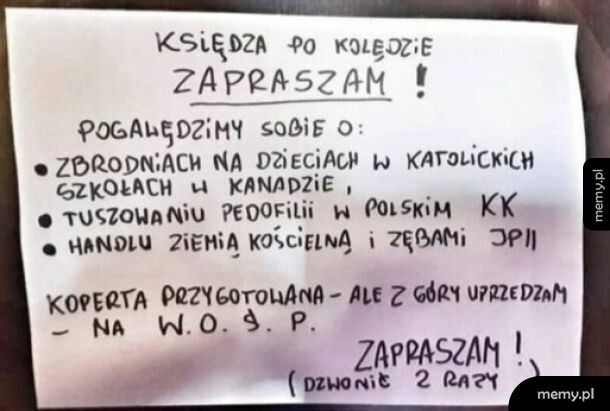 KSIĘDZA PO KOLĘDZIE
ZAPRASZAM !
POGAWĘDZIMY SOBIE O:
• ZBRODNIACH NA DZIECIACH W KATOLICKICH
SZKOŁACH W KANADZIE,
• TUSZOWANIU PEDOFILII W POLSKIM KK
• HANDLU ZIEMIĄ KOŚCIELNĄ i ZĘBAMI JPII
KOPERTA PRZYGOTOWANA - ALE Z GÓRY UPRZEDZAM
- NA W.O.Ś.P.
ZAPRASZAM !
(DZWONIĆ 2 RAZY)
memy.pl
memy.pl